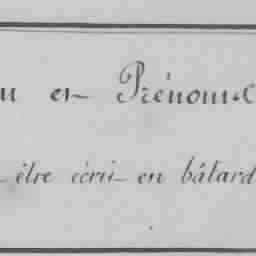 en Prénoms
être écrit en bâtard